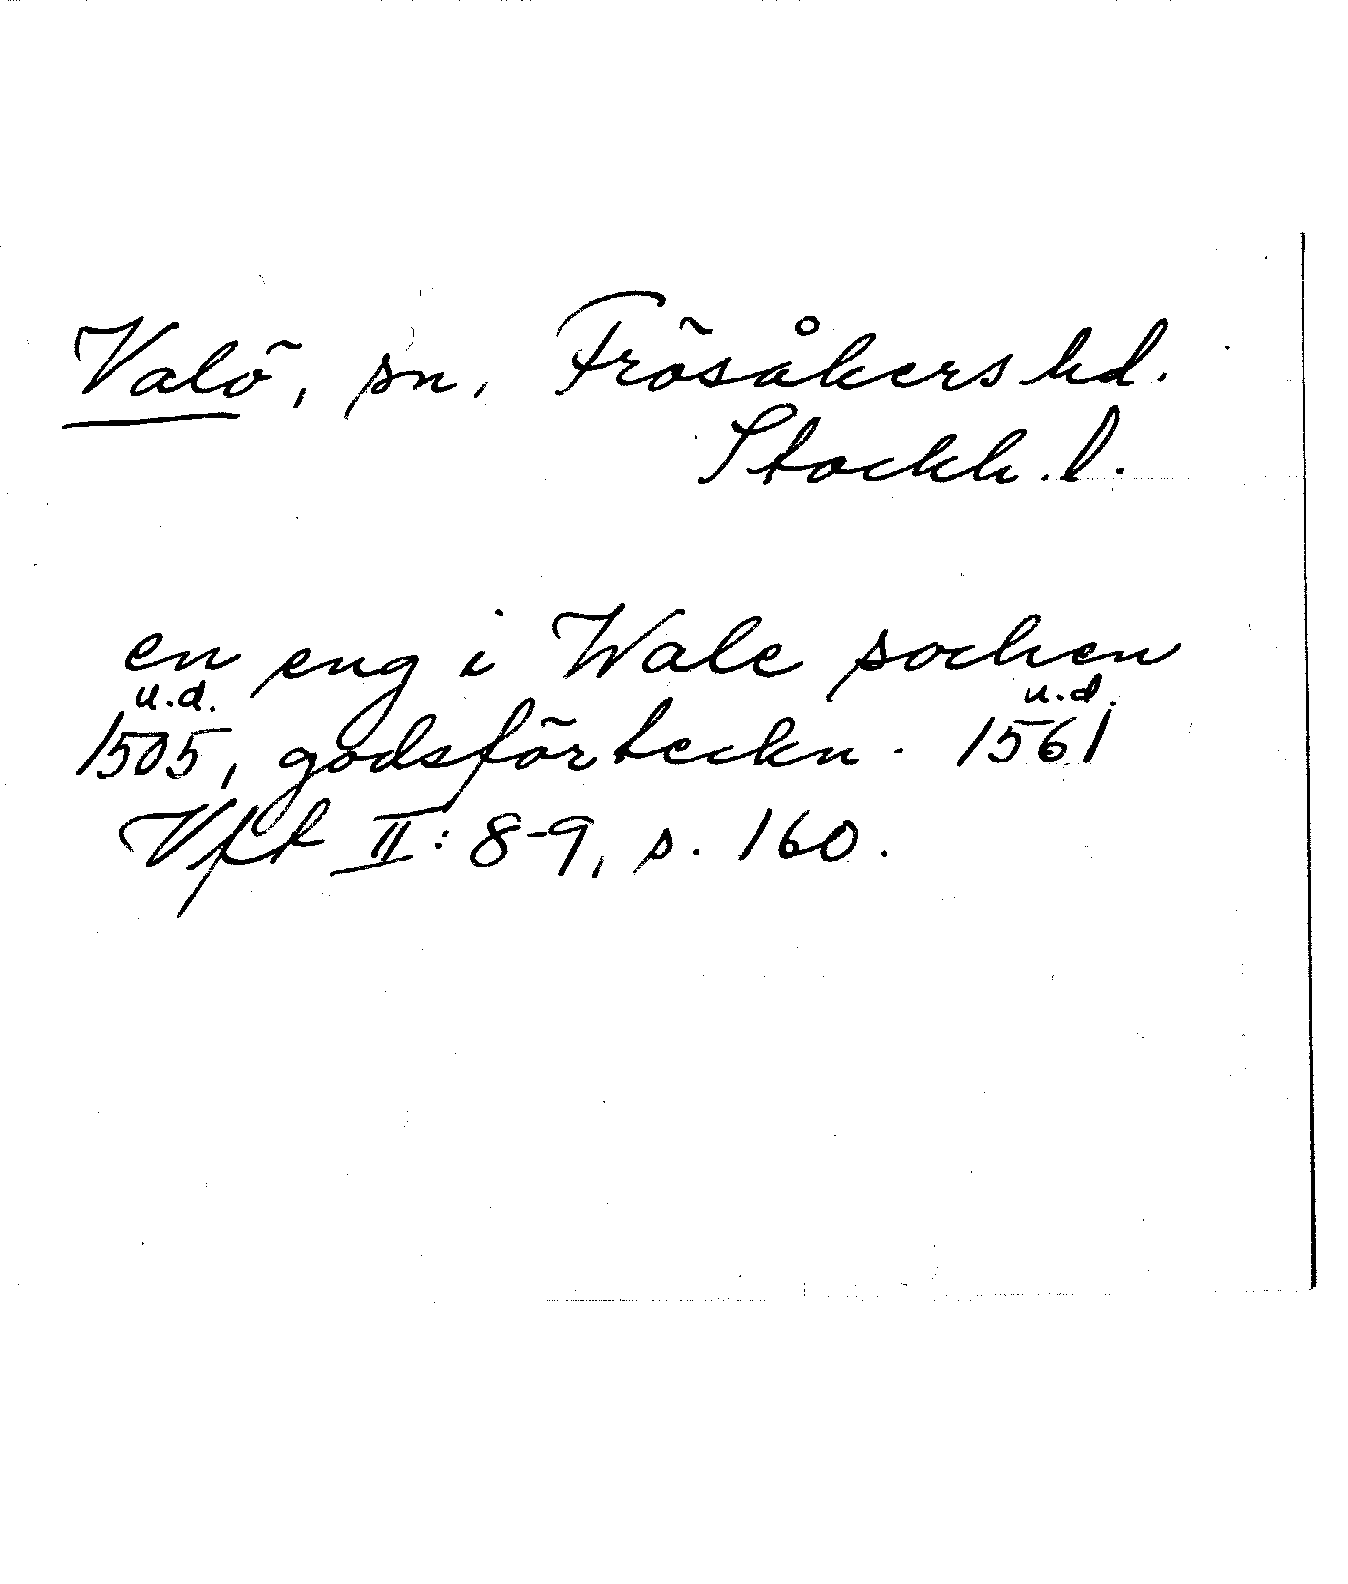 Valö, sn, Frösåkers hd.
Stockh. l.
en eng i Wale sochen
u.d. u.d.
1505, godsförteckn. 1561
Vft II: 8-9, s. 160.